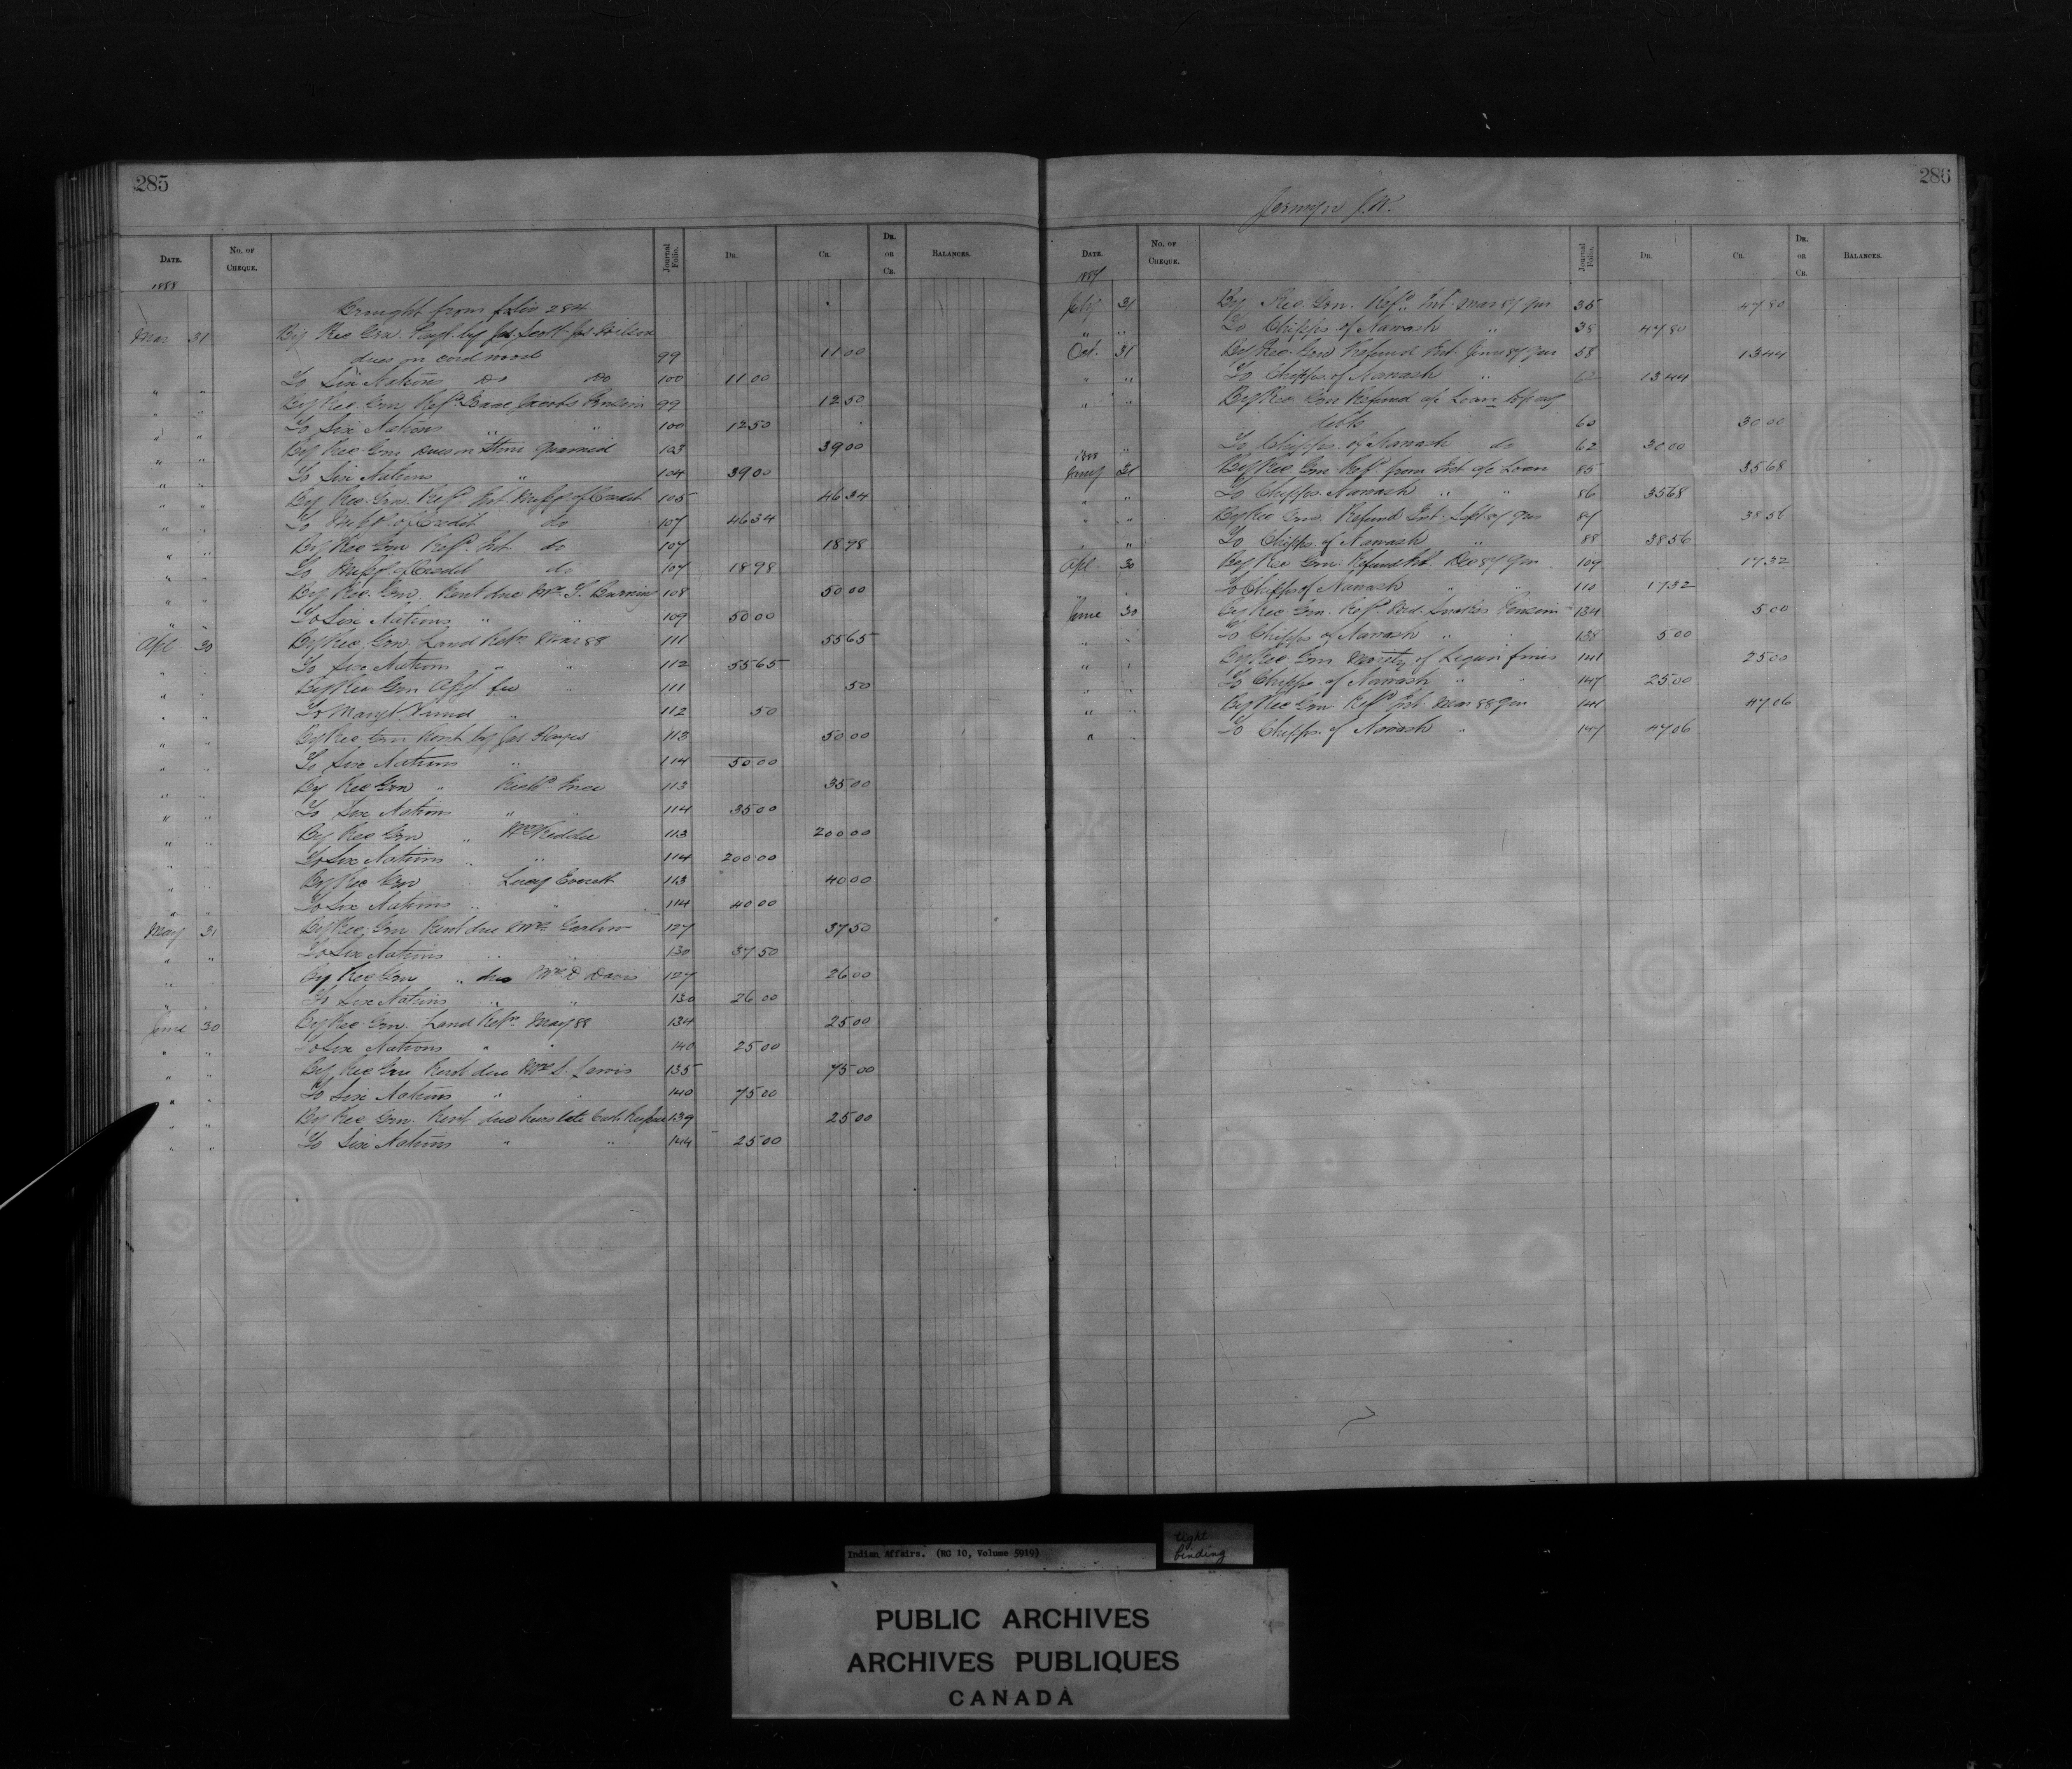 285
DATE. No. OF CHEQUE. Journal Folio. DR. CR. DR. OR CR. BALANCES.
1888
Brought from folio 284
Mar 31 By Rec Gen. Payt. by Jas. Scott
dues on cord wood 99 11 00
" " To Six Nations do do 100 11 00
" " By Rec. Gen Refd. Isaac Jacobs Pension 99 12 50
" " To Six Nations " " 100 12 50
" " By Rec Gen dues on Stone Quarried 103 39 00
" " To Six Nations " 104 39 00
" " By Rec. Gen. Refd. Int. Missgs of Credit 105 46 34
" " To Missgs. of Credit do 107 46 34
" " By Rec Gen Refd. Int. do 107 18 98
" " To Missgs. of Credit do 107 18 98
" " By Rec. Gen. Rent due Mrs. T. 108 50 00
" " To Six Nations " " 109 50 00
Apl 30 By Rec. Gen. Land Retn. Mar 88 111 55 65
" " To Six Nations " " 112 55 65
" " By Rec Gen fee " 111 50
" " To Mang't Fund " 112 50
" " By Rec. Gen Rent by Jas. 113 50 00
" " To Six Nations " 114 50 00
" " By Rec Gen " 113 35 00
" " To Six Nations " " 114 35 00
" " By Rec Gen " Wm 113 200 00
" " To Six Nations " " 114 200 00
" " By Rec. Gen Lucy Everett 113 40 00
" " To Six Nations " " 114 40 00
May 31 By Rec. Gen. Rent due Mrs. 127 37 50
" " To Six Nations " " 130 37 50
" " By Rec Gen " due Mrs. D Davis 127 26 00
" " To Six Nations " " 130 26 00
June 30 By Rec Gen. Land Retn. May 88 134 25 00
" " To Six Nations " " 140 25 00
" " By Rec Gen Rent due Mrs S. Lewis 135 75 00
" " To Six Nations " " 140 75 00
" " By Rec Gen. Rent due heirs late Cath. 139 25 00
" " To Six Nations " " 144 25 00
286
Jermyn J.W.
DATE. No. OF CHEQUE. Journal Folio. DR. CR. DR. OR CR. BALANCES.
1887
July 31 By Rec. Gen. Refd. Int. Mar 87 qur 35 47 80
" " To Chipps. of Nawash " 38 47 80
Oct. 31 By Rec. Gen Refund Int. June 87 qur 58 13 44
" " To Chipps. of Nawash " 13 44
" " By Rec Gen Refund a/c Loan to pay
debts 60 30 00
" To Chipps. of Nawash do 62 30 00
1888
Jany 31 By Rec. Gen Refd. from Int a/c Loan 85 35 68
" " To Chipps. Nawash " " 86 35 68
" " By Rec Gen. Refund Int. Sept 87 qur 87 38 56
" " To Chipps. of Nawash " 88 38 56
Apl. 30 By Rec Gen Refund Int. Dec 87 qur 109 17 32
" " To Chipps of Nawash " " 110 17 32
June 30 By Rec Gen. Refd. Pension 134 5 00
" " To Chipps of Nawash " " 138 5 00
" " By Rec. Gen Moiety of Liquor fines 141 25 00
" " To Chipps. of Nawash " " 147 25 00
" " By Rec Gen Refd Int. Mar 88 qur 141 47 06
" " To Chipps. of Nawash " 147 47 06
Indian Affairs. (RG 10, Volume 5919)
tight
binding
PUBLIC ARCHIVES
ARCHIVES PUBLIQUES
CANADA